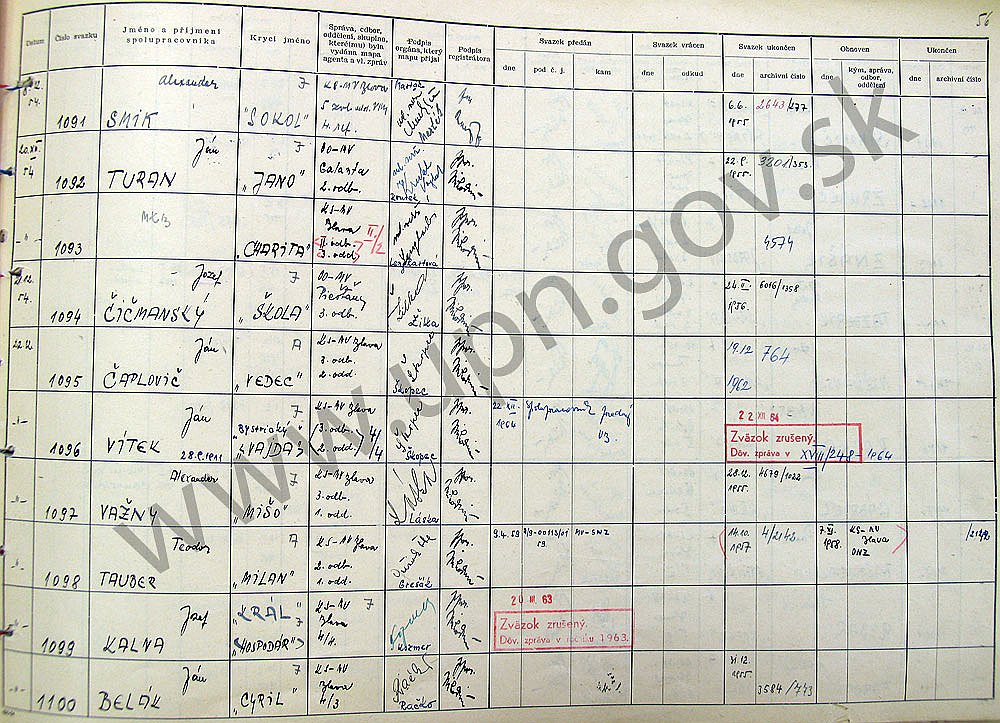 56
Datum
Číslo svazku
Jméno a příjmení
spolupracovníka
Krycí jméno
Správa, odbor,
oddělení, skupina,
kterému) byla
vydána mapa
agenta a vl. zpráv
Podpis
orgána, který
mapu přijal
Podpis
registrátora
Svazek předán
dne
pod č. j.
kam
Svazek vrácen
dne
odkud
Svazek ukončen
dne
archivní číslo
Obnoven
dne
kým, správa,
odbor,
oddělení
Ukončen
dne
archivní číslo
54.
1091
Alexander
SMIK
7
"SOKOL"
KS-MV Blava
6.6.
1955
2643/477
20.XII
54
1092
Ján
TURAN
7
"JANO"
OO-MV
Galanta
2. odb.
22.9.
1955.
3201/353
-"-
1093
"CHARITA"
KS-MV
Blava
II. odb.
3. odd.
II./2
Lenghartová
4574
21.12.
54.
1094
Jozef
ČIČMANSKÝ
7
"ŠKOLA"
OO-MV
Piešťany
3. odb.
Žilka
24.II.
1956.
6016/1358
22.12
1095
Ján
ČAPLOVIČ
A
"VEDEC"
KS-MV Blava
3. odb.
2. odd.
Škopec
19.12
1962
764
-"-
1096
Ján
VÍTEK
28.9.1911
7
"Bystrický"
"VAJDA"
KS-MV Blava
3. odb.
2. odd.
4/4
Škopec
22.XII.
1964
spolupracovník predný
VB.
22 XII 64
Zväzok zrušený.
Dôv. zpráva v XVIII/248-1964
-"-
1097
Alexander
VAŽNY
7
"MIŠO"
KS-MV Blava
3. odb.
1. odd.
Láska
28.12.
1955.
4679/1022
-"-
1098
Teodor
TAUBER
A
"MILAN"
KS-MV Blava
2. odb.
1. odd.
Grešák
9.4.59
59.
MV-SNZ
14.10.
1957
4/2142
7.XI.
1958.
KS-MV
Blava
OHZ
1099
Jozef
KALNA
"KRÁL"
7
"HOSPODÁR"
KS-MV
Blava
4/4.
7
Kuzmer
20 III 63
Zväzok zrušený.
Dôv. zpráva v ročníku 1963.
-"-
1100
Ján
BELÁK
7
"CYRIL"
KS-MV
Blava
4/3
Račko
31.12.
1955
3584/743
www.upn.gov.sk